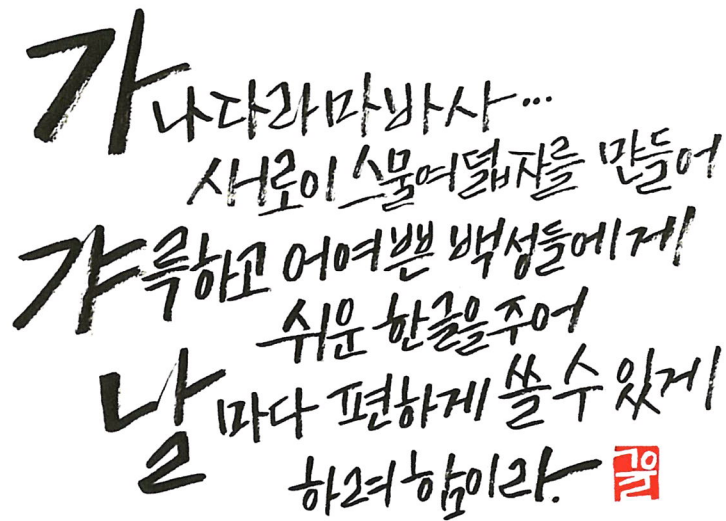 가나다라마바사...
새로이 스물여덟자를 만들어
갸륵하고 어여쁜 백성들에게
쉬운 한글을 주어
날마다 편하게 쓸 수 있게
하려 함이라.